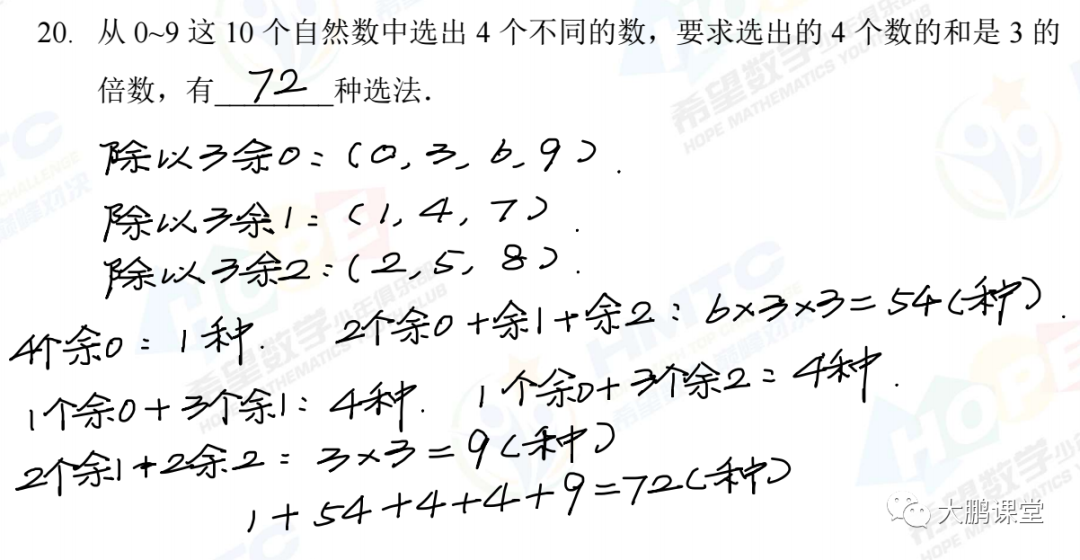 20. 从 0~9 这 10 个自然数中选出 4 个不同的数，要求选出的 4 个数的和是 3 的
倍数，有 72 种选法．
除以3余0：(0, 3, 6, 9).
除以3余1：(1, 4, 7).
除以3余2：(2, 5, 8).
4个余0：1种. 2个余0+余1+余2：6×3×3=54(种).
1个余0+3个余1：4种. 1个余0+3个余2=4种.
2个余1+2余2：3×3=9(种)
1+54+4+4+9=72(种)
大鹏课堂
希望数学少年俱乐部
HOPE MATHEMATICS YOUTH CLUB
HMTC